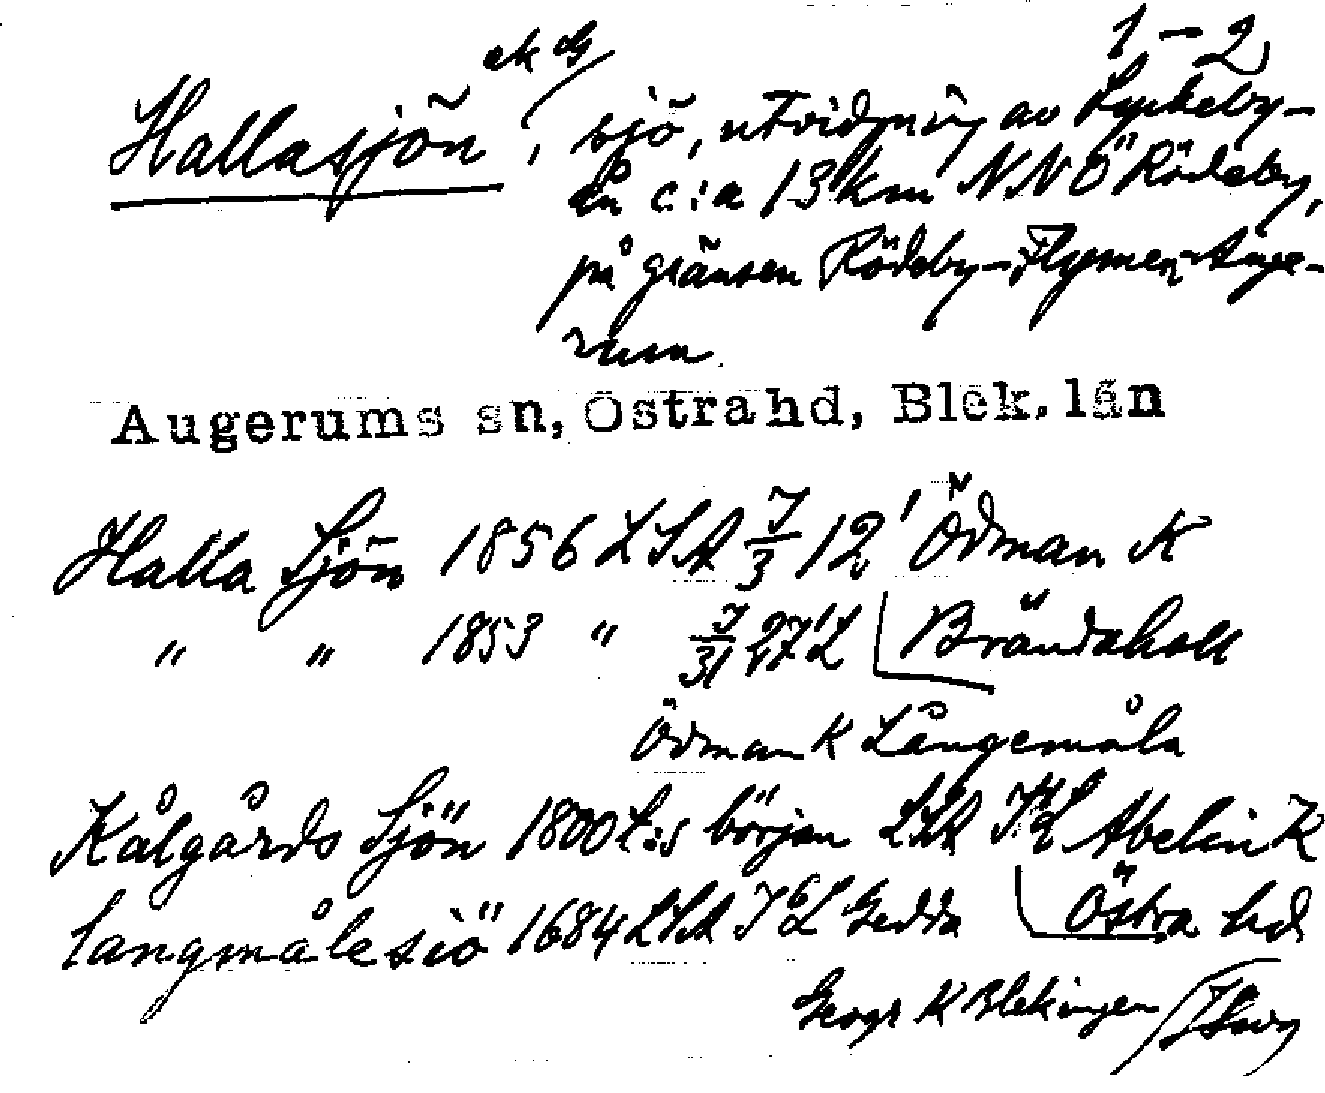 1-2
ek G
Hallasjön, sjö, utvidgning av Lyckeby-
ån c:a 13 km NNÖ Rödeby,
på gränsen Rödeby-Flymen-Auge-
rum.
Augerums sn, Östra hd, Blek. län
Halla Sjön 1856 LSA 7/3 12' Ödman K
" " 1853 " 7/31 27' L Brändahall
Ödman K Långemåla
Kålgårds Sjön 1800 t:s början LSA Abelin K
Långmålesiö 1684 LSA Gedda Östra hd
Geogr K Blekingen